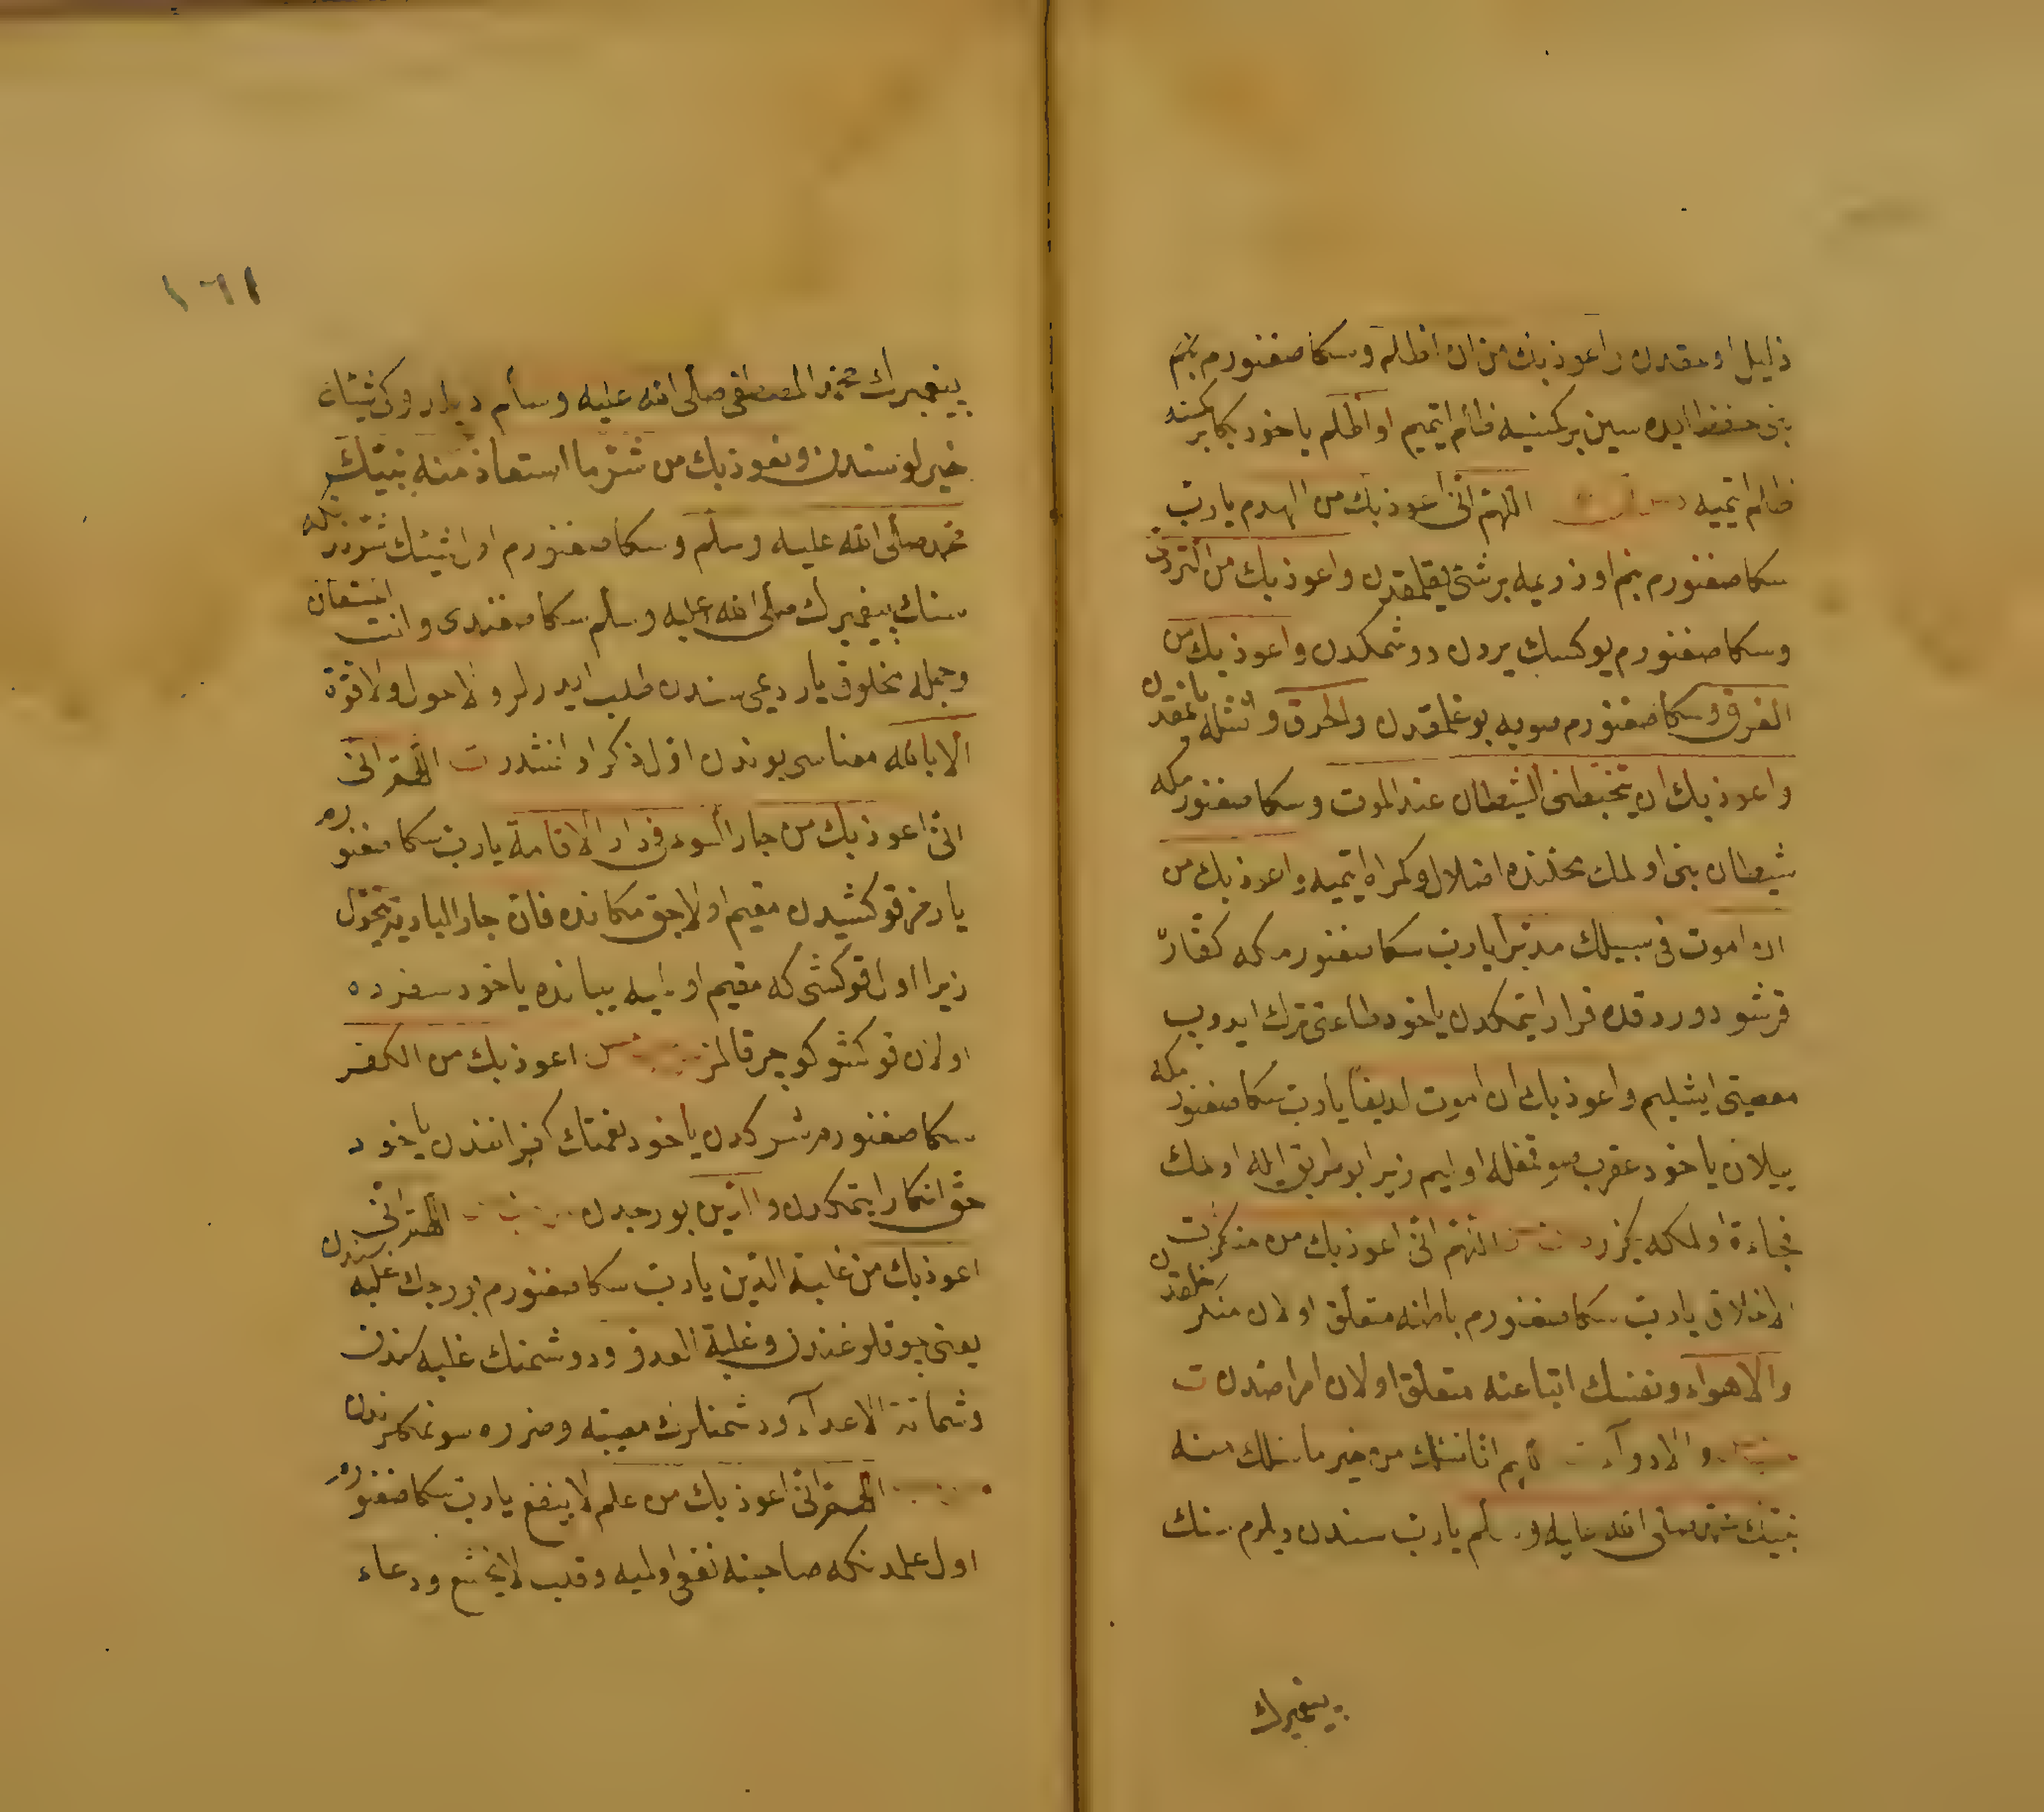 ذليل اولمقدن واعوذ بك من ان اظلم وسكا صغنورم بنم
بنى حفظ ايده سين بركمسيه ظلم ايتميم او اظلم ياخود بكا بر كمسنه
ظلم ايتميه اللهم انى اعوذ بك من الهدم يا رب
سكا صغنورم بنم اوزريمه برشى يقلمقدن واعوذ بك من التردى
وسكا صغنورم يوكسك يردن دوشمكدن واعوذ بك من
الغرق وسكا صغنورم صويه بوغلمقدن والحرق و يانمقدن
واعوذ بك ان يتخبطنى الشيطان عند الموت وسكا صغنورمكه
شيطان بنى اولمك محلنده اضلال وكمراه ايتميه واعوذ بك من
ان اموت فى سبيلك مدبرا يا رب سكا صغنورمكه كفار
قرشو دوررده فرار ايتمكدن ياخود طاعتى ترك ايدوب
معصيتى ايشليم واعوذ بك ان اموت لديغا يا رب سكا صغنورمكه
ييلان ياخود عقرب صوقمغله اوليم زيرا بو طريق ايله اولمك
فجاءة اولمكه بكزر اللهم انى اعوذ بك من منكرات
الاخلاق يا رب سكا صغنورم باطنه متعلق اولان منكر خلقدن
والاهواء ونفسك اتباعنه متعلق اولان امراضدن ت
والادواء ت اللهم انا نسئلك من خير ما سئلك منه
نبيك محمد صلى الله عليه وسلم يا رب سندن ديلرم سنك
پيغمبرك
١٦١
پيغمبرك محمد المصطفى صلى الله عليه وسلم ديلدوكى شيئك
خيرلوسندن ونعوذ بك من شر ما استعاذ منه نبيك
محمد صلى الله عليه وسلم وسكا صغنورم اول شيئك شرندنكه
سنك پيغمبرك صلى الله عليه وسلم سكا صغندى وانت المستعان
وجمله مخلوق ياردمى سندن طلب ايدرلر ولا حول ولا قوة
الا بالله معناسى بوندن اول ذكر اولنمشدر ت اللهم انى
انى اعوذ بك من جار السوء فى دار الاقامة يا رب سكا صغنورم
يارمز قوكشيدن مقيم اولاجق مكانده فان جار البادية يتحول
زيرا اول قوكشى كه مقيم اوليه يبانده ياخود سفرده
اولان قوكشو كوچر قالمز اعوذ بك من الكفر
سكا صغنورم شركدن ياخود نعمتك كفراننندن ياخود
حقى انكار ايتمكدن والدين بورجدن اللهم انى
اعوذ بك من غلبة الدين يا رب سكا صغنورم بورجك غلبه سندن
يعنى چوقلوغندن وغلبة العدو ودوشمنك غلبه سندن
وشماتة الاعداء ودشمنلرك مصيبته وضرره سونمكلرندن
اللهم انى اعوذ بك من علم لا ينفع يا رب سكا صغنورم
اول علمدنكه صاحبنه نفعى اولميه وقلب لا يخشع ودعاء